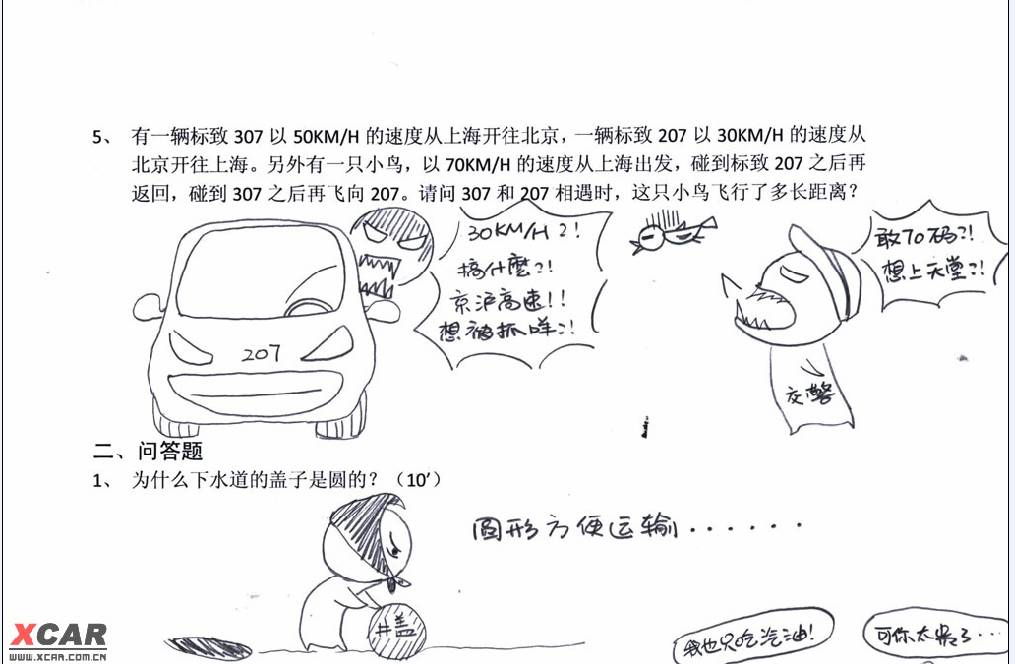 5、 有一辆标致 307 以 50KM/H 的速度从上海开往北京，一辆标致 207 以 30KM/H 的速度从
北京开往上海。另外有一只小鸟，以 70KM/H 的速度从上海出发，碰到标致 207 之后再
返回，碰到 307 之后再飞向 207。请问 307 和 207 相遇时，这只小鸟飞行了多长距离？
30KM/H？!
搞什麼？!
京沪高速！！
想被抓咩？!
敢70码？!
想上天堂？!
207
交警
二、问答题
1、 为什么下水道的盖子是圆的？（10’）
圆形方便运输······
井盖
我也只吃汽油！
可你太晃了···
XCAR
WWW.XCAR.COM.CN